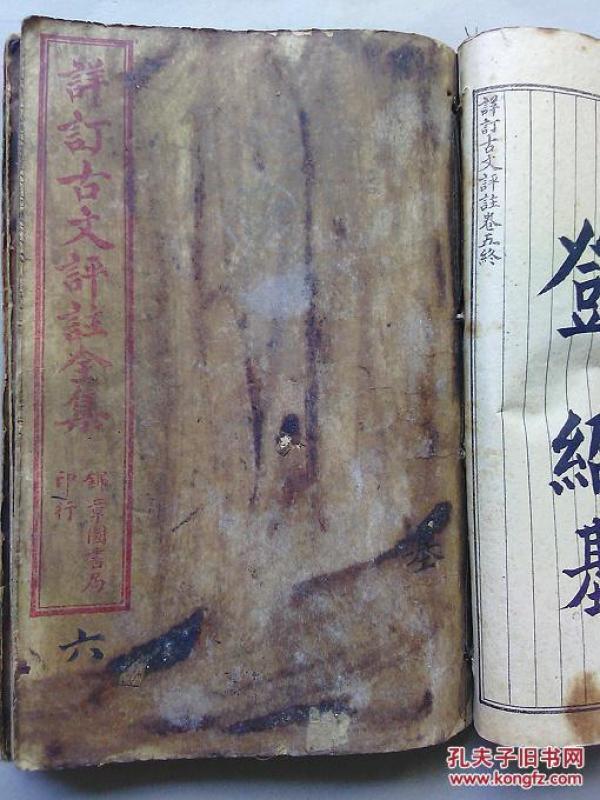 詳訂古文評註全集
錦章圖書局
印行
六
基
詳訂古文評註卷五終
登紹基
孔夫子旧书网
www.kongfz.com